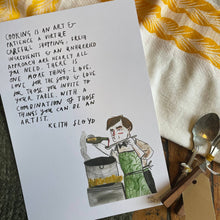 COOKING IS AN ART &
PATIENCE A VIRTUE
CAREFUL SHOPPING, FRESH
INGREDIENTS & AN UNHURRIED
APPROACH ARE NEARLY ALL
YOU NEED. THERE IS
ONE MORE THING - LOVE.
LOVE FOR THE FOOD & LOVE
FOR THOSE YOU INVITE TO
YOUR TABLE. WITH A
COMBINATION OF THOSE
THINGS YOU CAN BE AN
ARTIST.
KEITH FLOYD